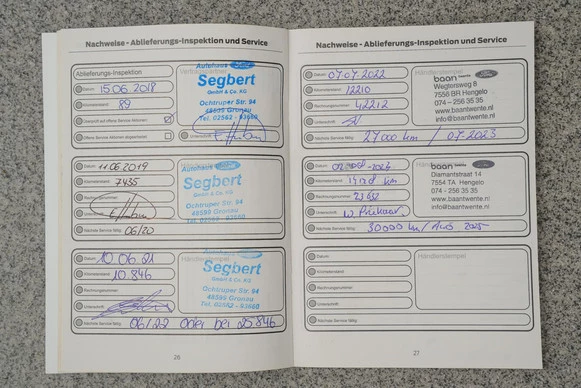 Nachweise - Ablieferungs-Inspektion und Service
Ablieferungs-Inspektion
Datum 15.06.2018
Kilometerstand 89
Rechnungsnummer
Überprüft auf offene Service Aktionen
Offene Service Aktionen abgearbeitet
Autohaus Ford
Segbert
GmbH & Co. KG
Ochtruper Str. 94
48599 Gronau
Tel. 02562 - 93660
Unterschrift
Datum 11.06.2019
Kilometerstand 7435
Rechnungsnummer
Unterschrift
Nächste Service fällig 06/20
Autohaus Ford
Segbert
GmbH & Co. KG
Ochtruper Str. 94
48599 Gronau
Datum 10.06.21
Kilometerstand 10.846
Rechnungsnummer
Unterschrift
Nächste Service fällig 06/22 oder bei 25846
Händlerstempel
Segbert
GmbH & Co. KG
Ochtruper Str. 94
48599 Gronau
Tel. 02562 - 93660
26
Nachweise - Ablieferungs-Inspektion und Service
Datum 07.07.2022
Kilometerstand 12210
Rechnungsnummer 42212
Unterschrift
Nächste Service fällig 27000 km / 07-2023
Händlerstempel
baan twente Ford
Wegtersweg 8
7556 BR Hengelo
074 - 256 35 35
www.baantwente.nl
info@baantwente.nl
Datum
Kilometerstand
Rechnungsnummer
Unterschrift
Nächste Service fällig 30000 km / Aug 2025
Händlerstempel
baan twente Ford
Diamantstraat 14
7554 TA Hengelo
074 - 256 35 35
www.baantwente.nl
info@baantwente.nl
Datum
Kilometerstand
Rechnungsnummer
Unterschrift
Nächste Service fällig
Händlerstempel
27